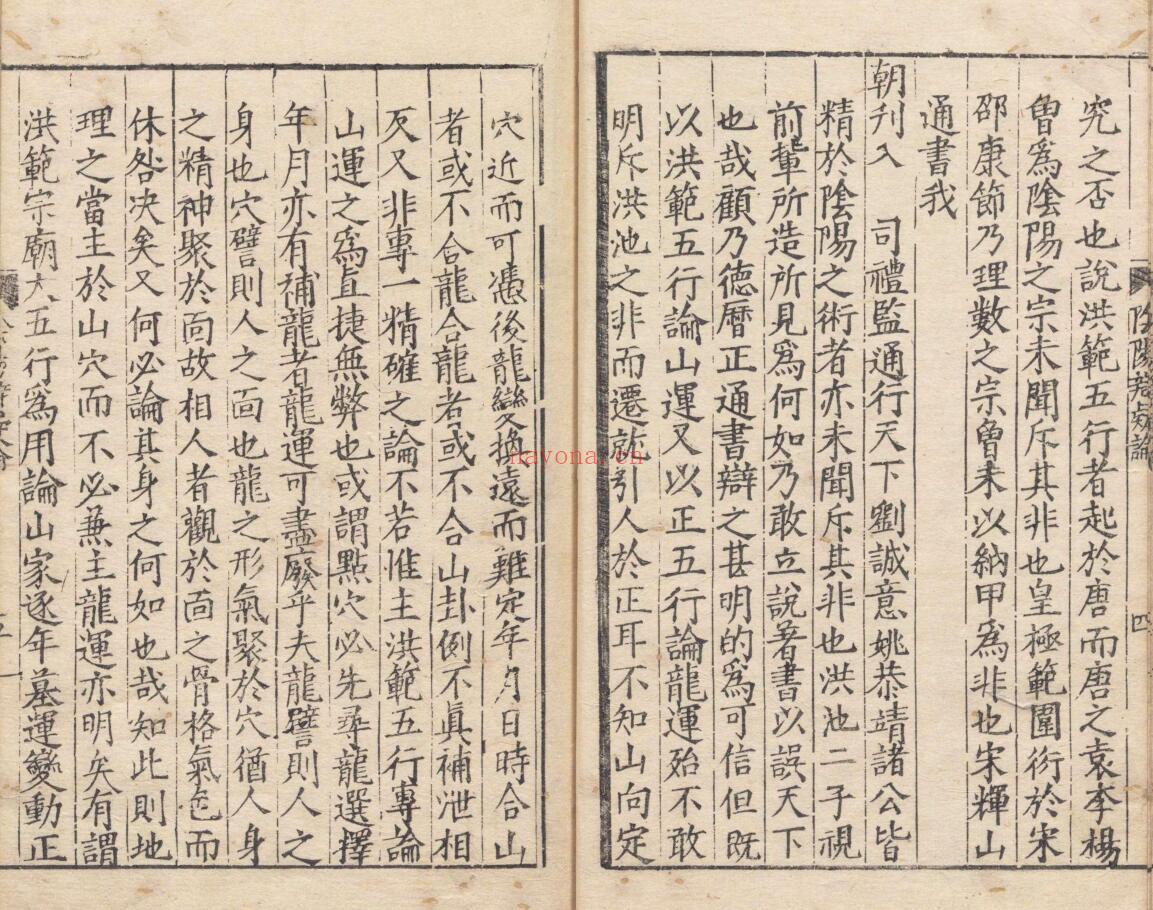 陰陽發疑論
四
究之否也說洪範五行者起於唐而唐之袁李楊
曾爲陰陽之宗未聞斥其非也皇極範圍衍於宋
邵康節乃理數之宗曾未以納甲爲非也宋輝山
通書我
朝刋入　司禮監通行天下劉誠意姚恭靖諸公皆
精於陰陽之術者亦未聞斥其非也洪池二子視
前輩所造所見爲何如乃敢立說著書以誤天下
也哉顧乃德曆正通書辯之甚明的爲可信但旣
以洪範五行論山運又以正五行論龍運殆不敢
明斥洪池之非而遷就引人於正耳不知山向定
穴近而可憑後龍變換遠而難定年月日時合山
者或不合龍合龍者或不合山卦例不眞補泄相
反又非專一精確之論不若惟主洪範五行專論
山運之爲直捷無弊也或謂點穴必先尋龍選擇
年月亦有補龍者龍運可盡廢乎夫龍譬則人之
身也穴譬則人之面也龍之形氣聚於穴猶人身
之精神聚於面故相人者觀於面之骨格氣色而
休咎决矣又何必論其身之何如也哉知此則地
理之當主於山穴而不必兼主龍運亦明矣有謂
洪範宗廟大五行爲用論山家逐年墓運變動正
navona.cn